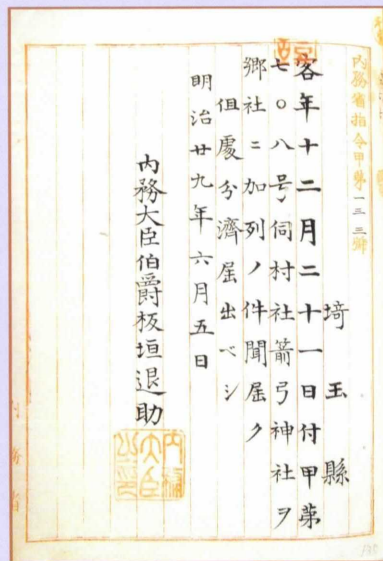 内務省指令甲第一三三號
埼玉縣
客年十二月二十一日付甲第
七〇八号伺村社箭弓神社ヲ
郷社ニ加列ノ件聞届ク
伹處分濟届出ベシ
明治廿九年六月五日
内務大臣伯爵板垣退助
内務大臣之印